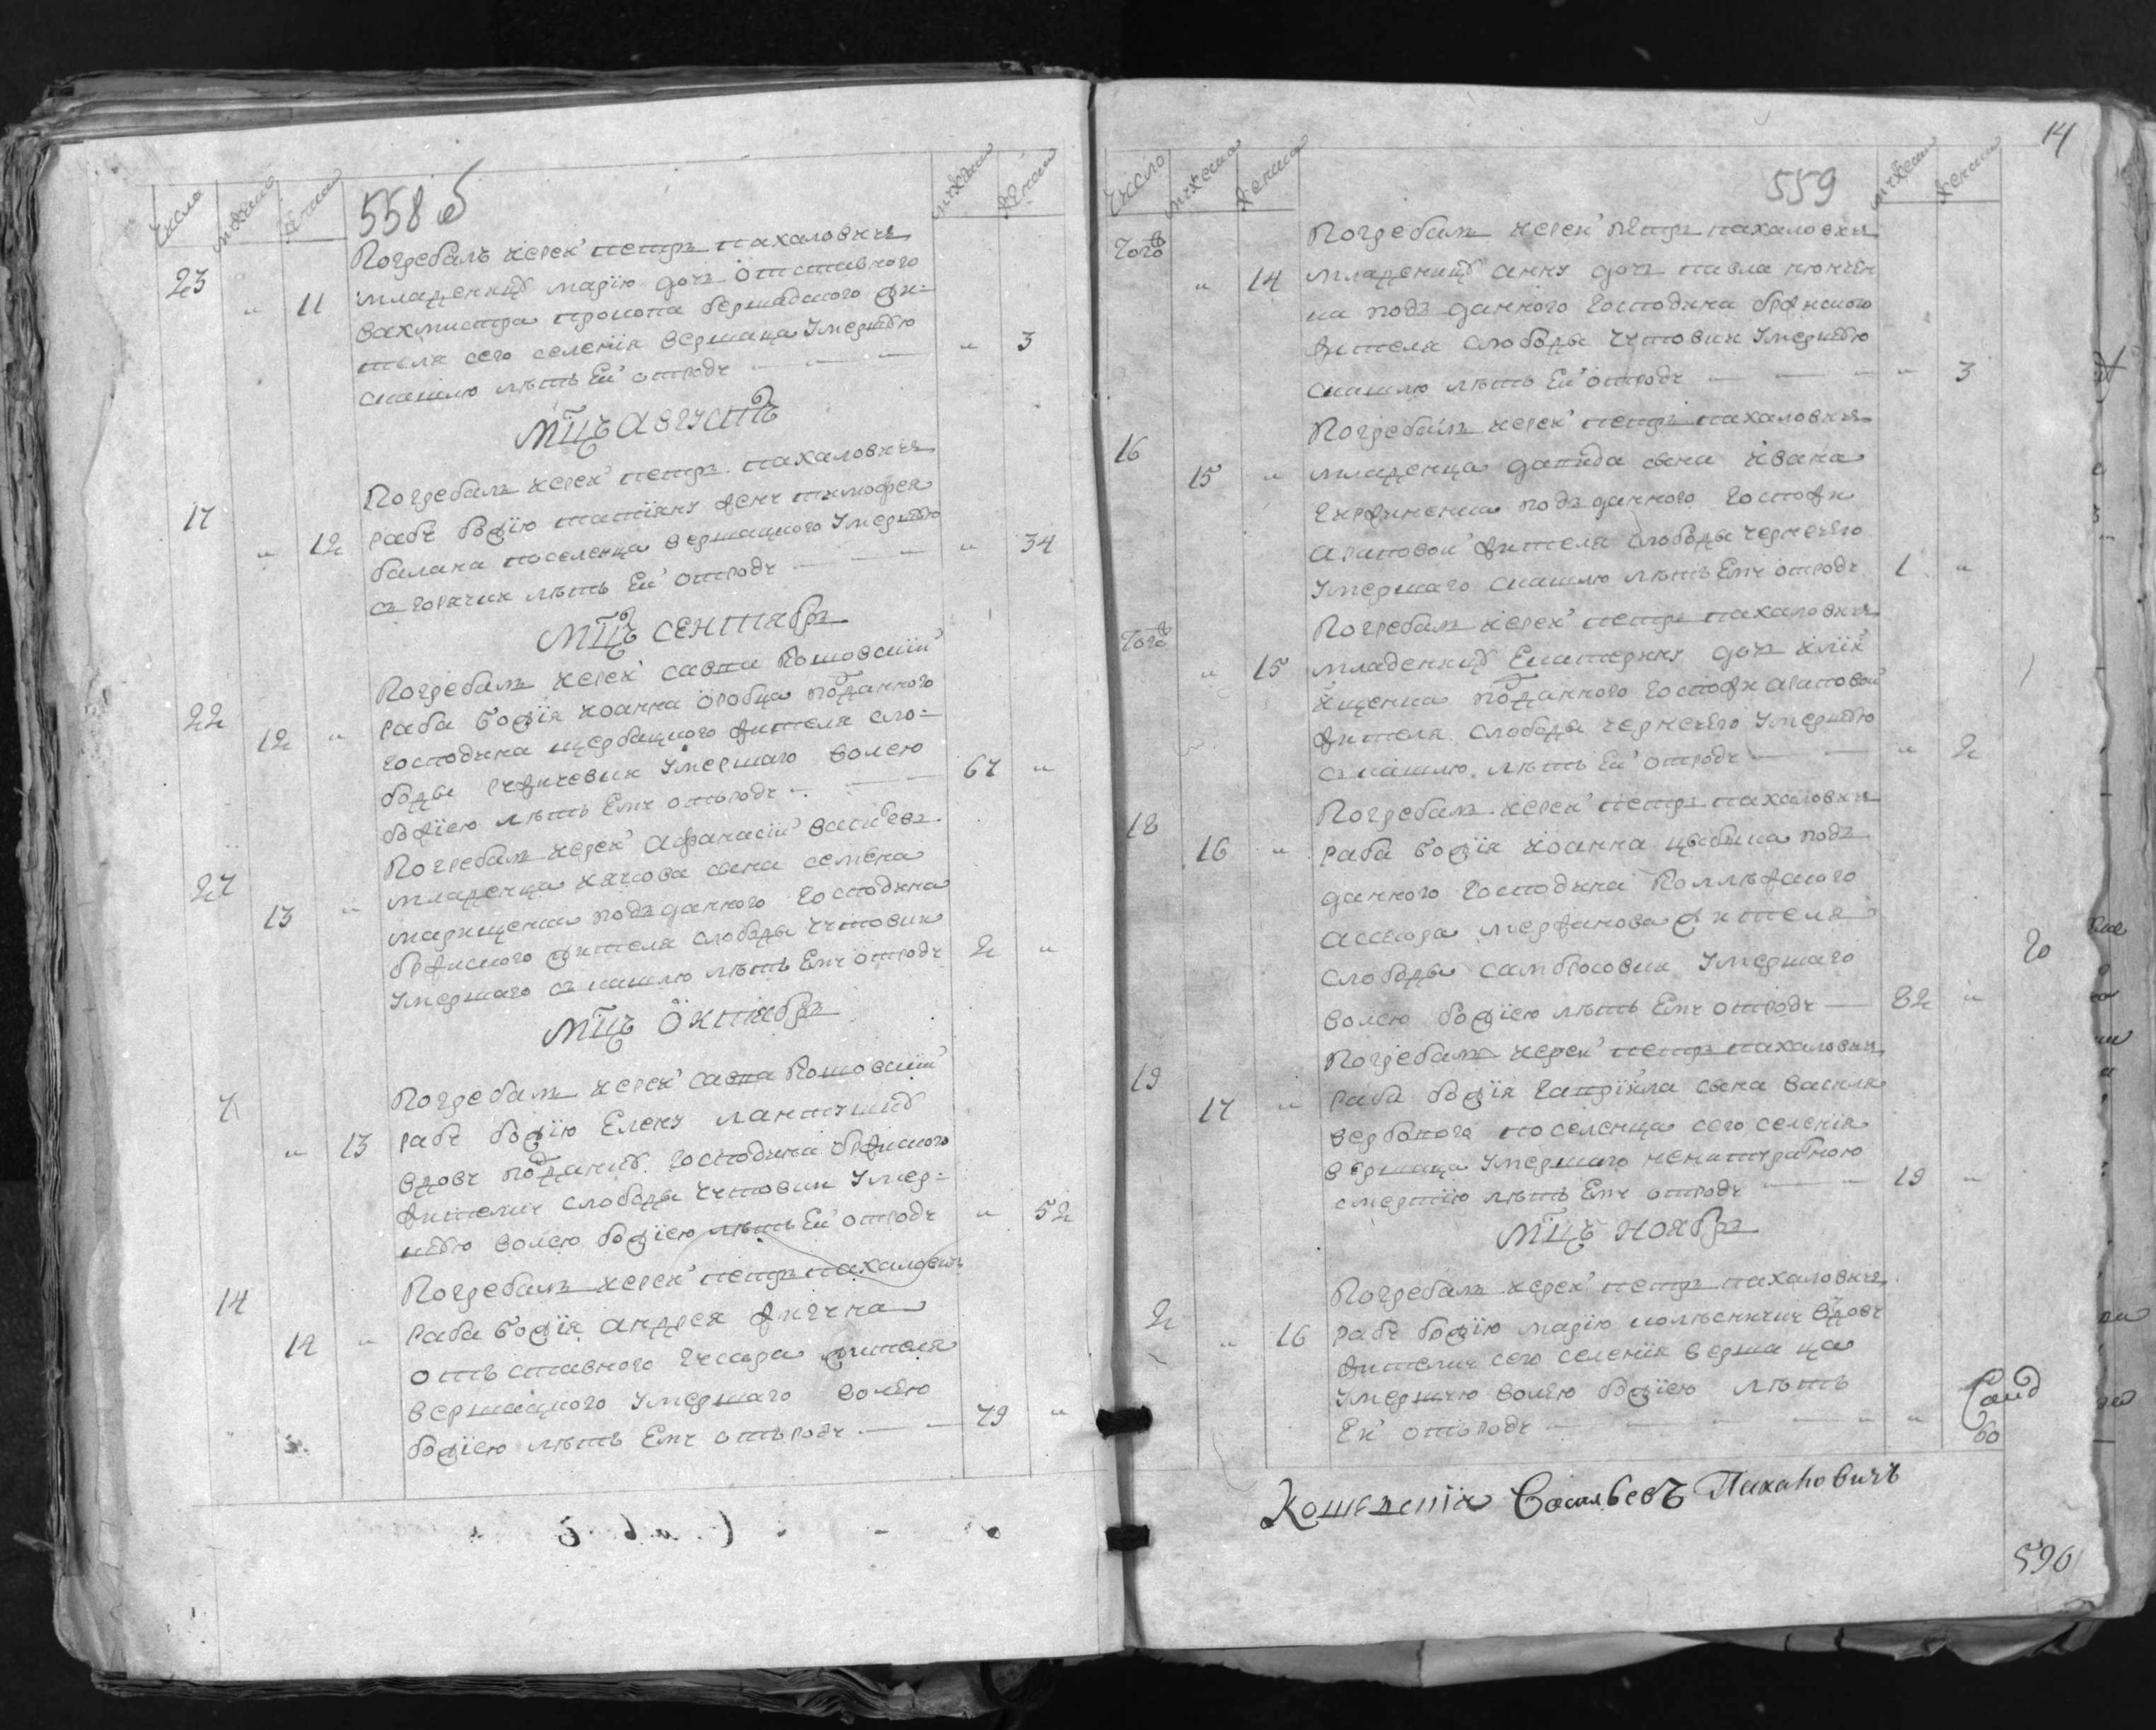 Число мужеска женска 558 б мужеска женска
Погребалъ иерей петръ пахаловичъ
23 " 11 младеницу марїю дочь отставного
вахмистра прокопа бершадского жи-
теля сего селенїя вершаца умершую
кашлю лѣтъ Ей отроду — — " 3
Мцъ августъ
Погребалъ иерей петръ пахаловичъ
17 " 12 рабу божїю татїяну жену тимофея
балана поселенца вершацкого умершую
съ горячки лѣтъ Ей отроду — — " 34
Мцъ сентябрь
Погребалъ иерей савва
22 12 " раба божїя иоанна подданного
господина щербацкого жителя сло-
боды умершаго волею
божїею лѣтъ Ему отъроду — — 67 "
Погребалъ иерей афанасїй василевъ
27 13 " младенца якова сына семена
марищенка подъданного господина
жителя слободы
умершаго съ кашлю лѣтъ Ему отроду 2 "
Мцъ Октябрь
Погребалъ иерей савва
7 " 13 рабу божїю Елену
вдову подданую господина
жителку слободы умер-
шую волею божїею лѣтъ Ей отроду " 52
Погребалъ иерей петръ пахаловичъ
14 14 " раба божїя андрея
отъставного гусара жителя
вершацкого умершаго волею
божїею лѣтъ Ему отъроду — — 79 "
14
Число мужеска женска 559 мужеска женска
Тогож Погребалъ иерей петръ пахаловичъ
" 14 младеницу анну дочь павла
ка подъ данного господина
жителя слободы умершую
кашлю лѣтъ Ей отроду — — — " 3
16 Погребалъ иерей петръ пахаловичъ
15 " младенца данила сына ивана
подъ данного госпожи
агаповой жителя слободы чернечего
умершаго кашлю лѣтъ Ему отроду 1 "
Тогож Погребалъ иерей петръ пахаловичъ
" 15 младеницу Екатерину дочь
подданного госпожи агаповой
жителя слободы чернечего умершую
съ кашлю лѣтъ Ей отроду — — " 2
18 Погребалъ иерей петръ пахаловичъ
16 " раба божїя иоанна подъ
данного господина Коллѣжского
ассесора мержанова жителя
слободы самбросовки умершаго
волею божїею лѣтъ Ему отроду — 82 "
19 Погребалъ иерей петръ пахаловичъ
17 " раба божїя гаврїила сына василя
вербового поселенца сего селенїя
вершаца умершаго ненатуральною
смертїю лѣтъ Ему отроду — — 19 "
Мцъ ноябрь
Погребалъ иерей петръ пахаловичъ
2 " 16 рабу божїю марїю вдову
жителку сего селенїя верша ца
умершую волею божїею лѣтъ
Ей отъроду — — — — " 60
Васильевъ Пахаловичъ
590